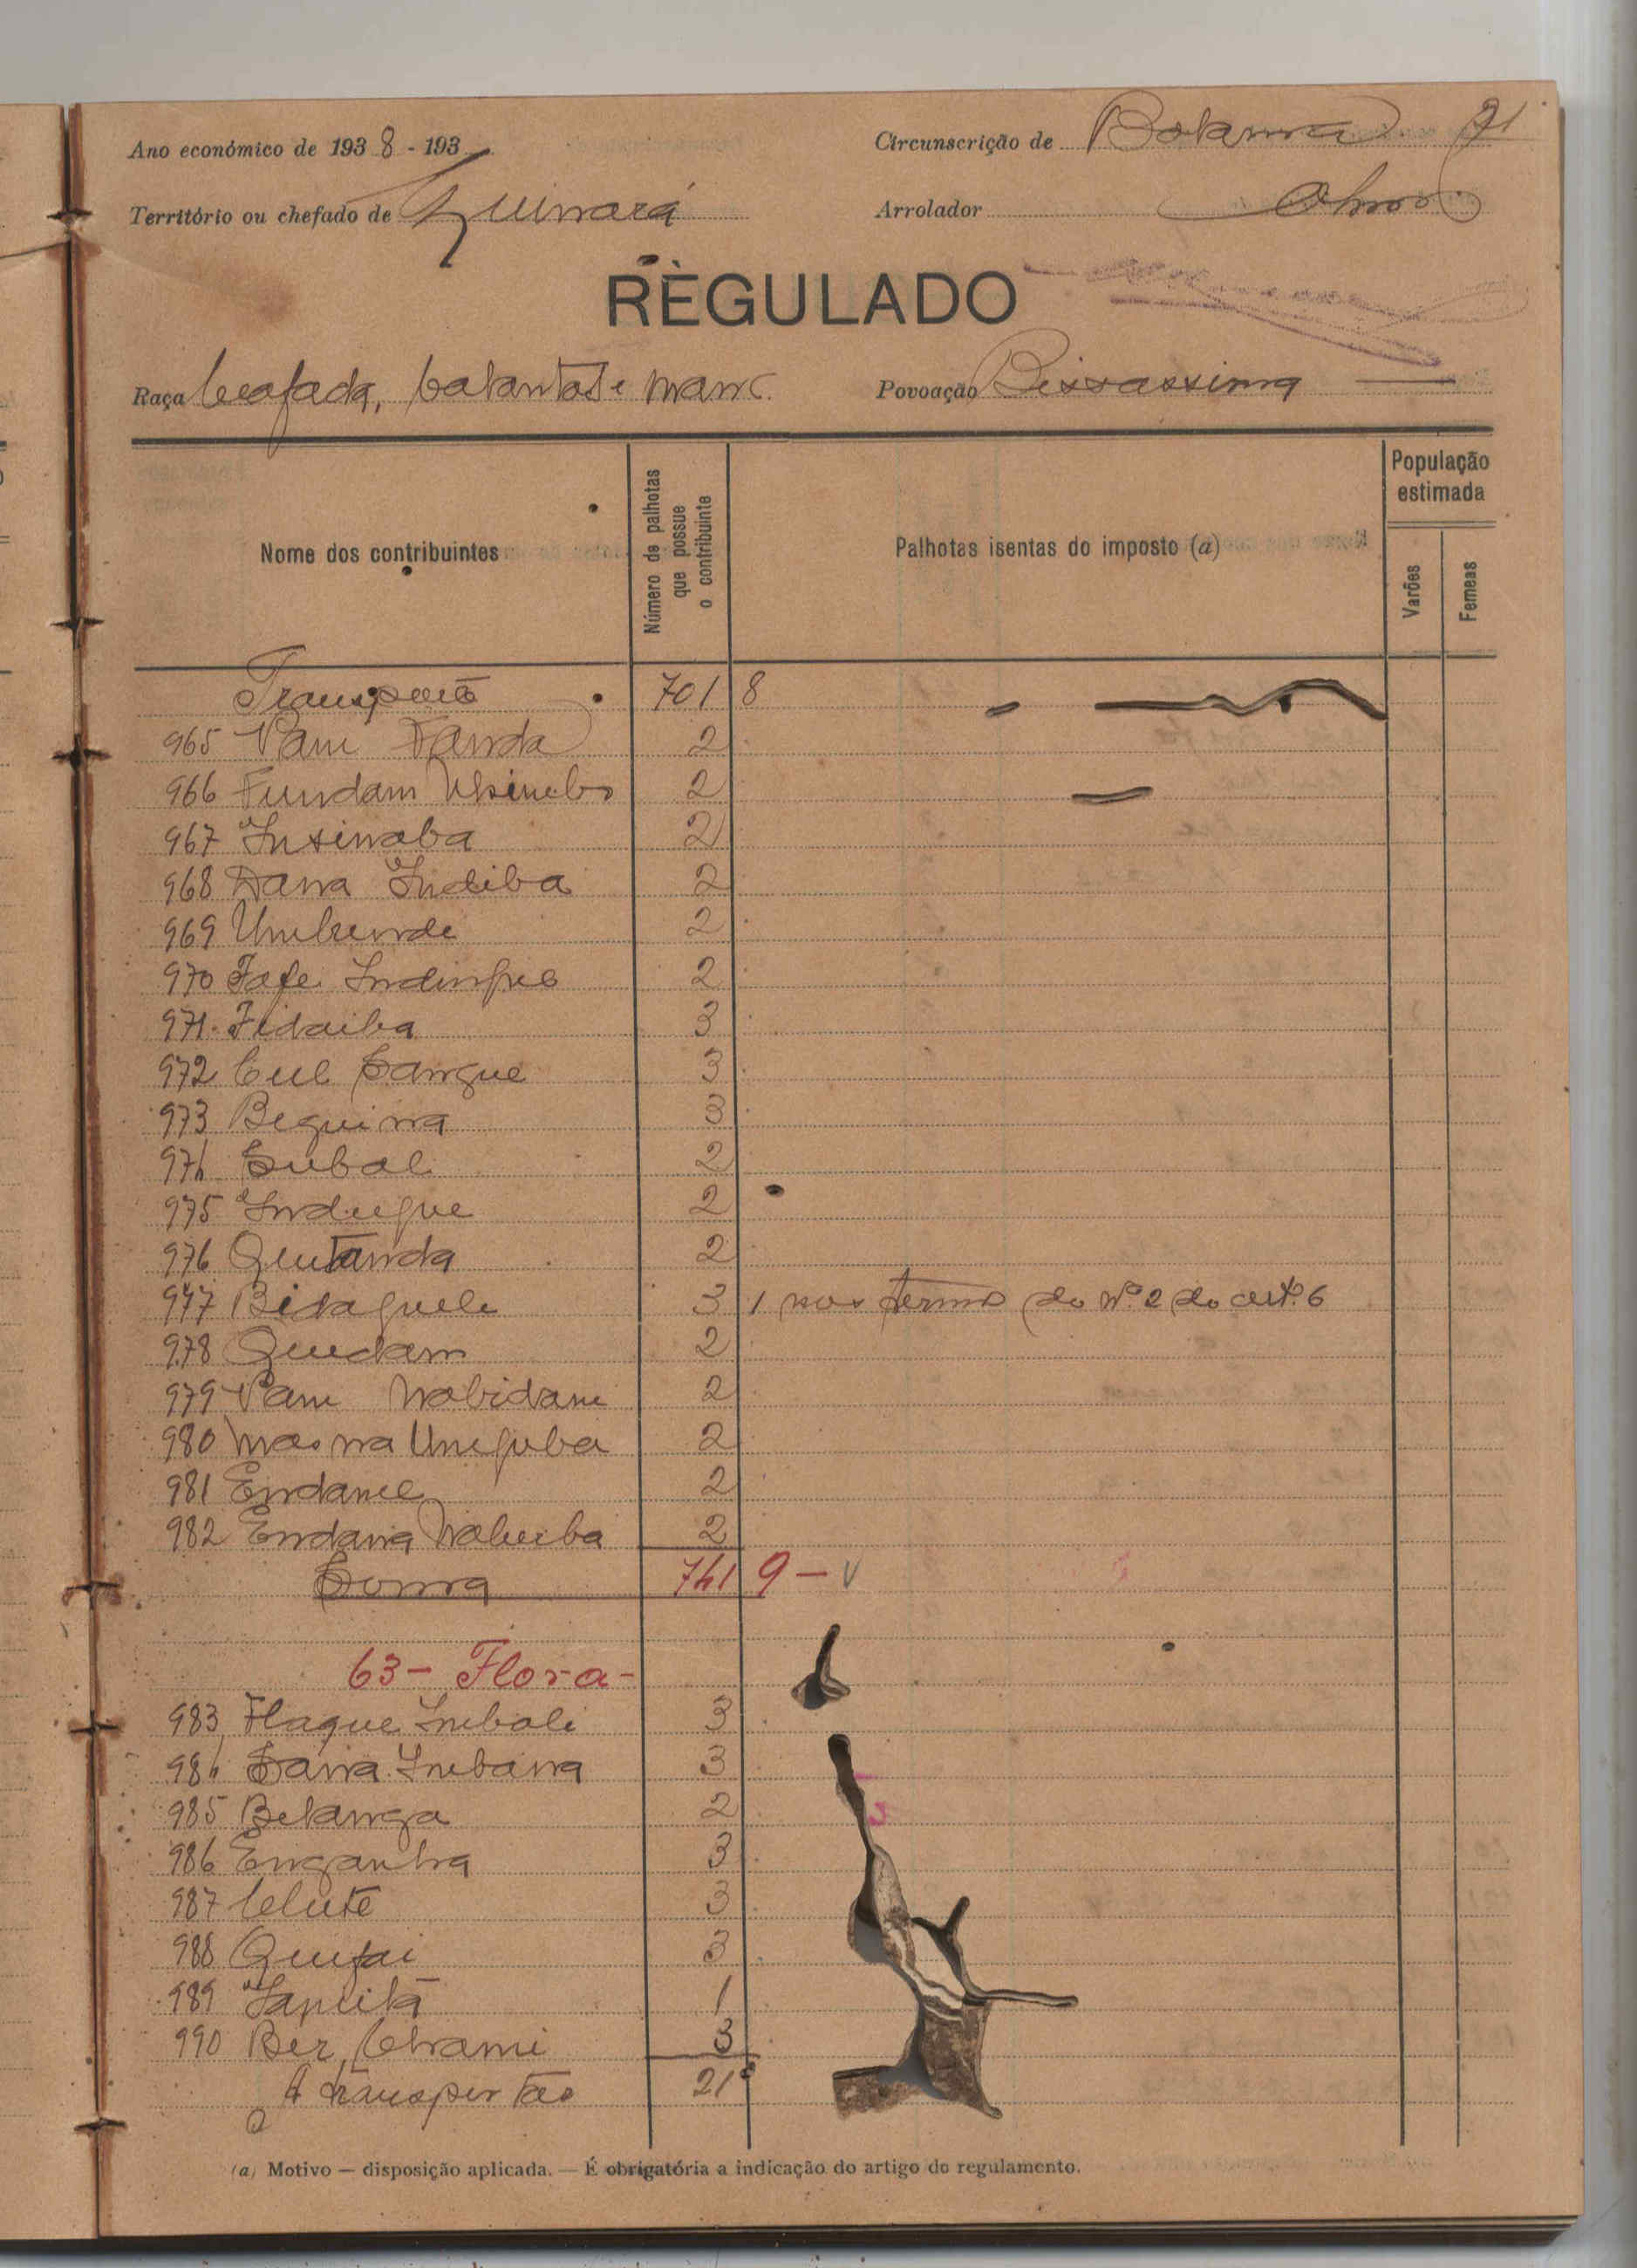 Ano económico de 1938 - 193
Circunscrição de Bolama 71
Território ou chefado de Quinará
Arrolador
REGULADO
Raça beafada, balantas e manc.
Povoação Bissassima
Nome dos contribuintes
Número de palhotas que possue o contribuinte
Palhotas isentas do imposto (a)
População estimada
Varões
Femeas
Transporte 701 8
965 Vam Danda 2
966 Fundam 2
967 Insinaba 2
968 Dana Indiba 2
969 Umbunde 2
970 Fafe 2
971 Fidaiba 3
972 Cul Sangue 3
973 Bequina 3
974 Subal 2
975 Indugue 2
976 Quitanda 2
977 Bidaguele 3 1 nos termos do nº 2 do artº 6
978 Quedam 2
979 Vam Nabidam 2
980 2
981 Endamel 2
982 Endana 2
Soma 741 9 -
63 - Flora -
983 Flaque Imbali 3
984 Sana Imbana 3
985 Belanga 2
986 Enganha 3
987 Celute 3
988 Quifai 3
989 1
990 Ber 3
A transportar 21
(a) Motivo — disposição aplicada. — É obrigatória a indicação do artigo do regulamento.